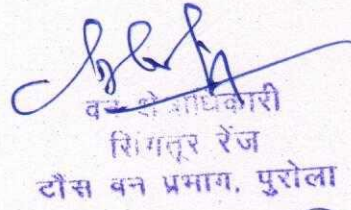 वन क्षेत्राधिकारी
सिंगतूर रेंज
टौंस वन प्रभाग, पुरोला